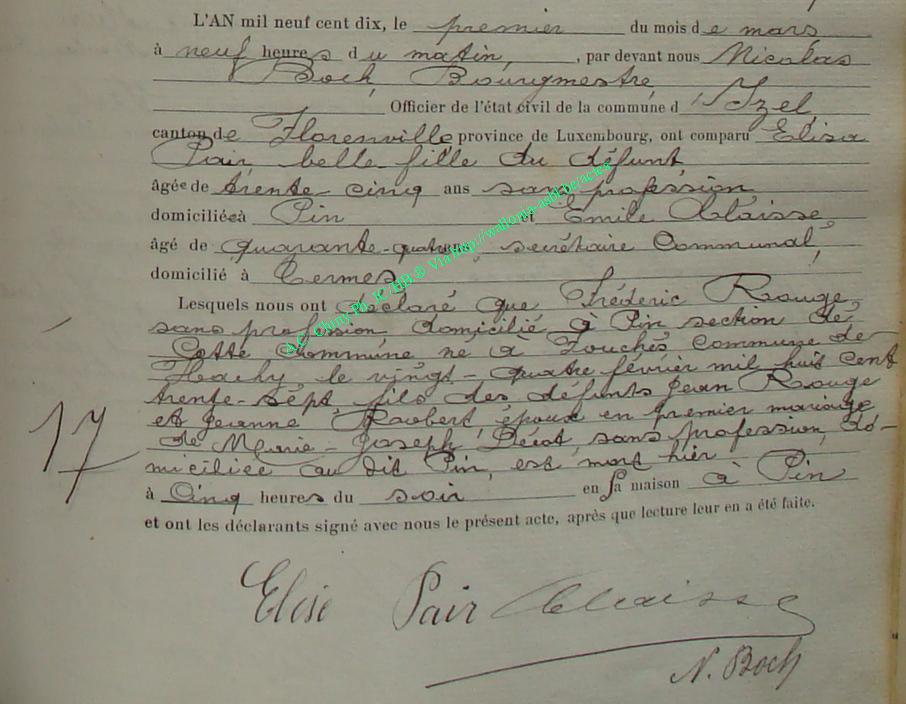 L'AN mil neuf cent dix, le premier du mois de mars
à neuf heures du matin, , par devant nous Nicolas
Boch, Bourgmestre,
Officier de l'état civil de la commune d'Izel,
canton de Florenville province de Luxembourg, ont comparu Elisa
Pair belle fille du défunt
âgée de trente-cinq ans sans profession
domiciliée à Pin et Emile
âgé de quarante-quatre secrétaire Communal,
domicilié à Termes
Lesquels nous ont déclaré que Frédéric Rouge
sans profession domicilié à Pin section de
cette commune né à Fouches commune de
Hachy le vingt-quatre février mil huit cent
trente-sept, fils des défunts Jean Rouge
et Jeanne époux en premier mariage
de Marie-Joseph sans profession, do-
miciliée au dit Pin, est mort hier
à Cinq heures du soir en sa maison à Pin
et ont les déclarants signé avec nous le présent acte, après que lecture leur en a été faite.
17
Elise Pair
N. Boch
A.C. Chiny Ph. JC HB © Via http://wallonia-asbl.be/actes